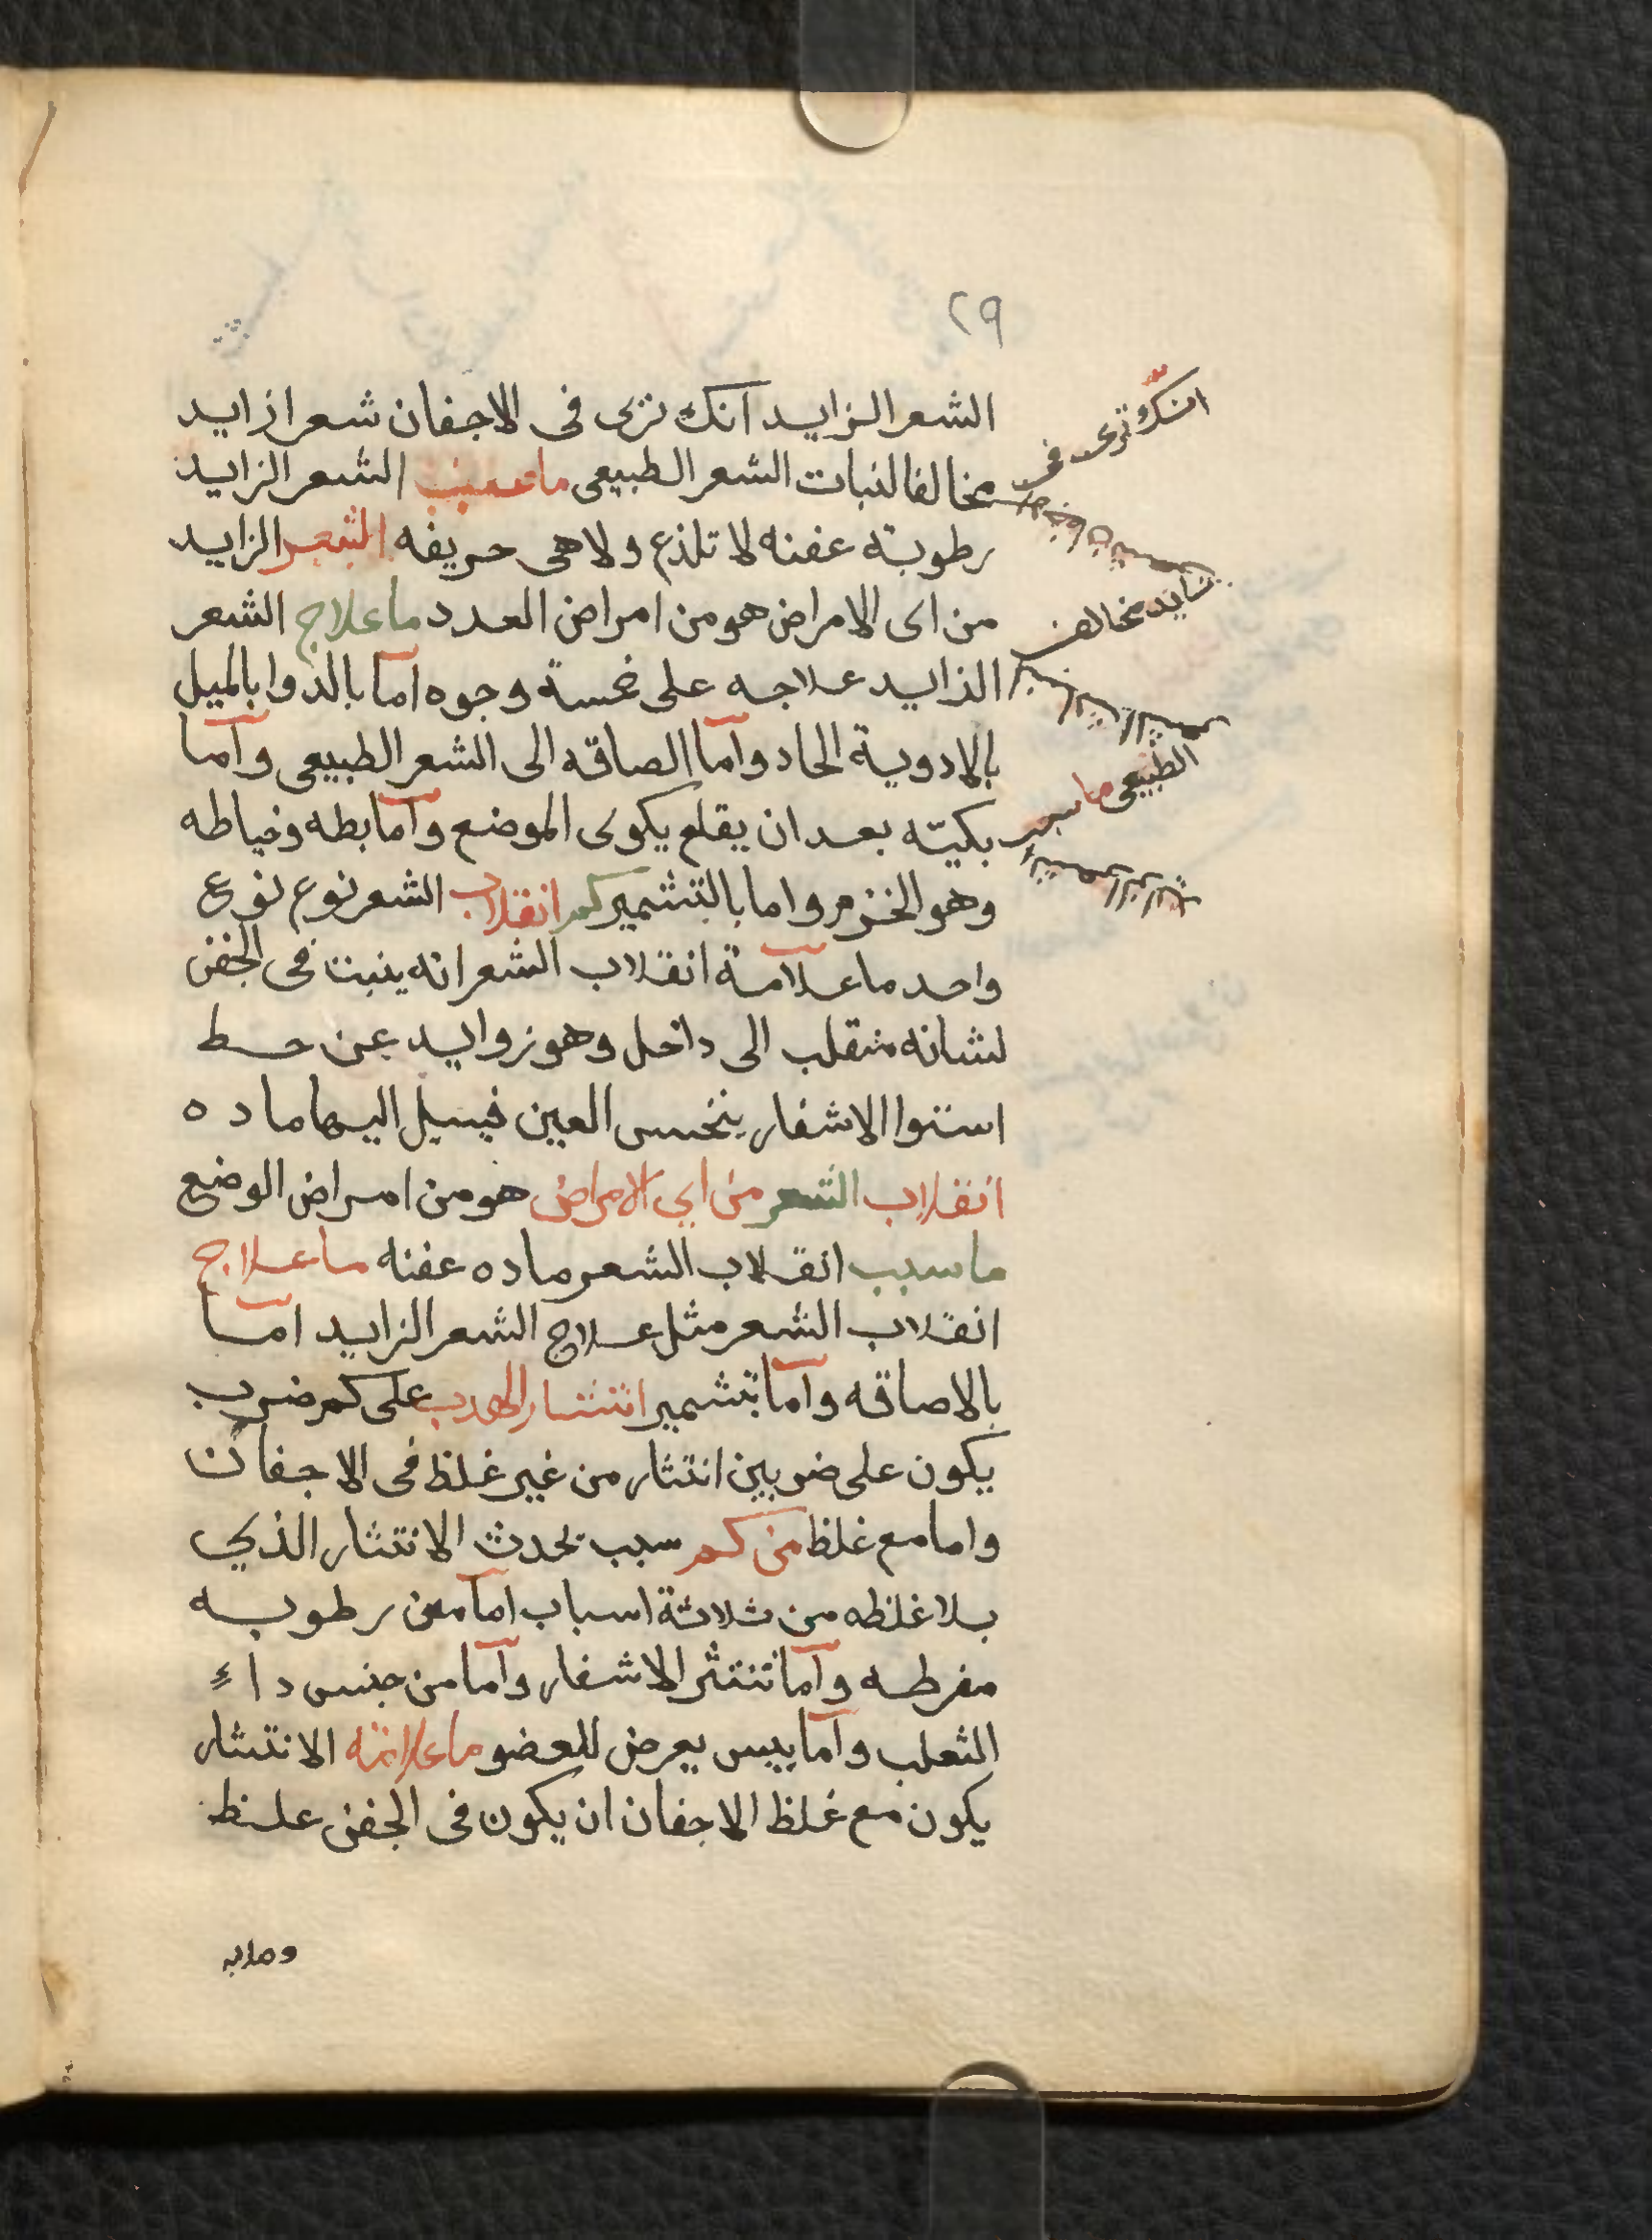 ٢٩
الشعر الزايد انك ترى فى الاجفان شعرا زايد
مخالفا لنبات الشعر الطبيعى ما سبب الشعر الزايد
رطوبة عفنه لا تلذع ولا هى حريفه الشعر الزايد
من اى الامراض هو من امراض العدد ما علاج الشعر
الزايد علاجه على خمسة وجوه اما بالدوا بالميل
بالادوية الحاد واما الصاقه الى الشعر الطبيعى واما
بكيّه بعد ان يقلع يكوى الموضع واما بطه وخياطه
وهو الخزم واما بالتشمير كم انقلاب الشعر نوع نوع
واحد ما علامة انقلاب الشعر انه ينبت فى الجفن
لشانه منقلب الى داخل وهو زوايد عن حط
استوا الاشفار ينخس العين فيسيل اليها ماده
انقلاب الشعر من اي الامراض هو من امراض الوضع
ما سبب انقلاب الشعر ماده عفنه ما علاج
انقلاب الشعر مثل علاج الشعر الزايد اما
بالاصاقه واما بتشمير انتثار الهدب على كم ضرب
يكون على ضربين انتثار من غير غلظ فى الاجفان
واما مع غلظ من كم سبب يحدث الانتثار الذي
بلا غلظه من ثلاثة اسباب اما من رطوبه
مفرطه واما تنتثر الاشفار واما من جنس داء
الثعلب واما يبس يعرض للعضو ما علامة الانتثار
يكون مع غلظ الاجفان ان يكون فى الجفن غلظ
انك ترى فى
الاجفان شعر
زايد مخالف
لنبات الشعر
الطبيعى ما سبب
الشعر الزايد